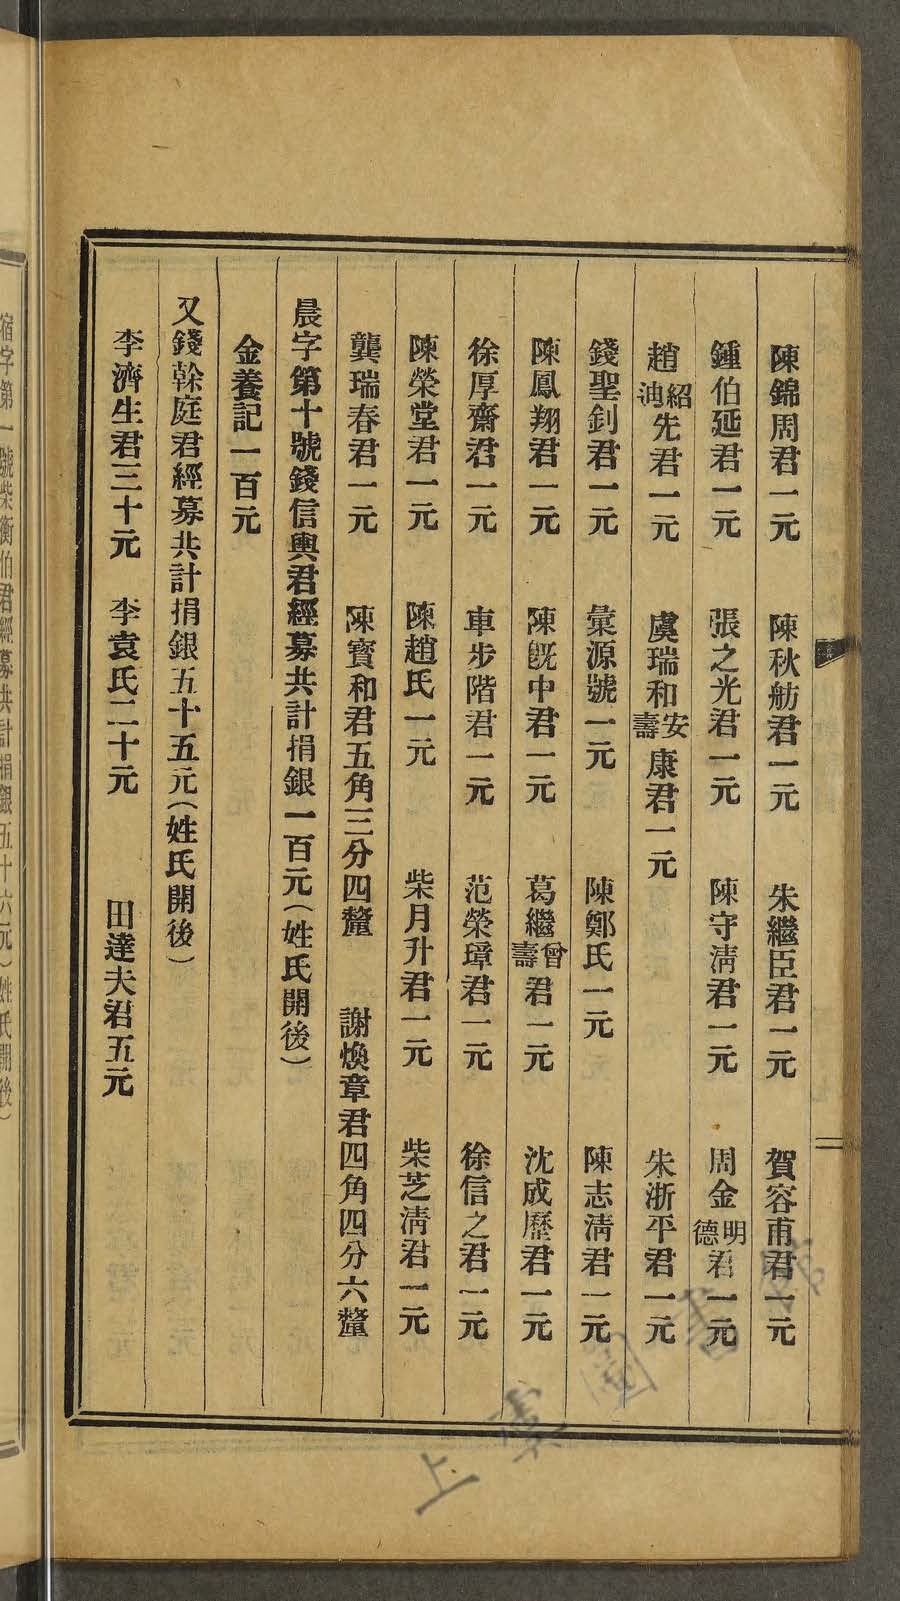 陳錦周君一元　陳秋舫君一元　朱繼臣君一元　賀容甫君一元
鍾伯延君一元　張之光君一元　陳守淸君一元　周金明德君一元
趙紹迪先君一元　虞瑞和安壽康君一元　朱浙平君一元
錢聖釗君一元　彙源號一元　陳鄭氏一元　陳志淸君一元
陳鳳翔君一元　陳旣中君一元　葛繼曾壽君一元　沈成歷君一元
徐厚齋君一元　車步階君一元　范榮璋君一元　徐信之君一元
陳榮堂君一元　陳趙氏一元　柴月升君一元　柴芝淸君一元
龔瑞春君一元　陳寳和君五角三分四釐　謝煥章君四角四分六釐
晨字第十號錢信輿君經募共計捐銀一百元（姓氏開後）
金養記一百元
又錢榦庭君經募共計捐銀五十五元（姓氏開後）
李濟生君三十元　李袁氏二十元　田達夫君五元
宿字第一號柴衡伯君經募共計捐銀五十六元（姓氏開後）
上虞圖書館